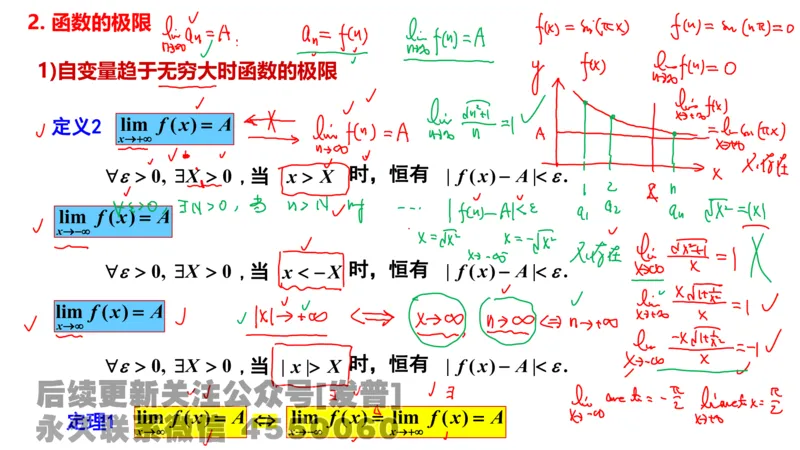 2. 函数的极限 lim_{n→∞} a_n = A. a_n = f(n) lim_{n→∞} f(n) = A f(x) = sin(πx) f(n) = sin(nπ) = 0
1)自变量趋于无穷大时函数的极限 y f(x) lim_{n→∞} f(n) = 0
定义2 lim_{x→+∞} f(x) = A lim_{n→∞} f(n) = A lim_{n→∞} √(n²+1)/n = 1 A lim_{x→+∞} f(x)
= lim_{x→+∞} sin(πx)
x 不存在
∀ε > 0, ∃X > 0 , 当 x > X 时，恒有 | f(x) − A |< ε.
1 2 n
∀ε>0 ∃N>0, 当 n>N 时 ... |f(n)−A|<ε a₁ a₂ a_n √x² = |x|
lim_{x→−∞} f(x) = A
x = √x² x = −√x² x→−∞ 不存在 lim_{x→∞} √(x²+1)/x = 1
∀ε > 0, ∃X > 0 , 当 x < −X 时，恒有 | f(x) − A |< ε.
lim_{x→∞} f(x) = A |x|→+∞ ⟺ x→∞ n→∞ ⟺ n→+∞ lim_{x→+∞} x√(1+1/x²)/x = 1
lim_{x→−∞} −x√(1+1/x²)/x = −1
∀ε > 0, ∃X > 0 , 当 | x |> X 时，恒有 | f(x) − A |< ε.
后续更新关注公众号[发普]
lim_{x→−∞} arctan x = −π/2 lim_{x→+∞} arctan x = π/2
定理1 lim_{x→∞} f(x) = A ⇔ lim_{x→−∞} f(x) = lim_{x→+∞} f(x) = A